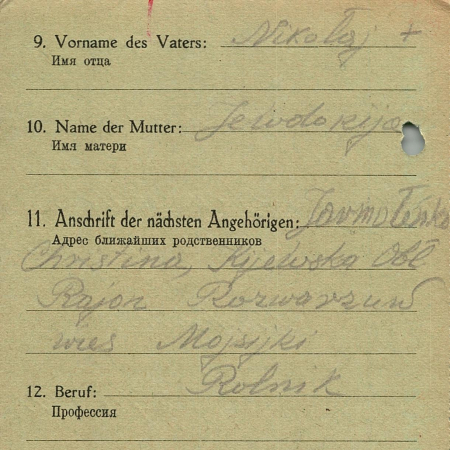 9. Vorname des Vaters: Nikołaj +
Имя отца
10. Name der Mutter: Jewdokija
Имя матери
11. Anschrift der nächsten Angehörigen: Jarmołenko
Адрес ближайших родственников
Christina, Kijewska Obł
Rajon Rozwarzuw
wieś Mojsijki
12. Beruf: Rolnik
Профессия